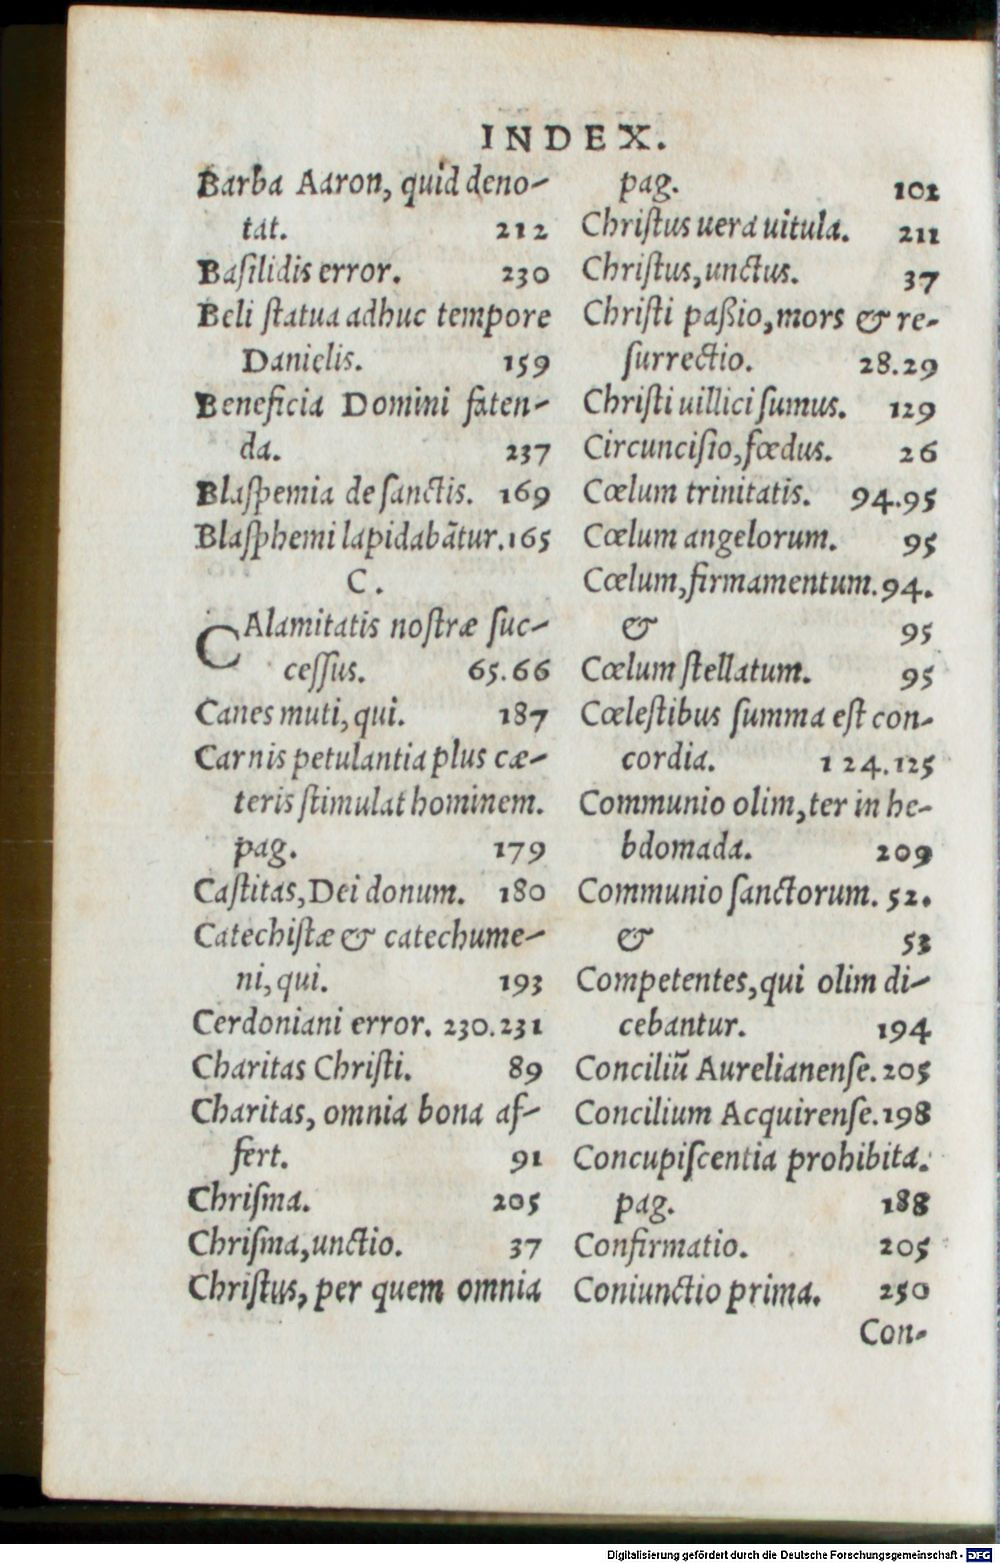 INDEX.
Barba Aaron, quid deno-
tat. 212
Basilidis error. 230
Beli ſtatua adhuc tempore
Danielis. 159
Beneficia Domini faten-
da. 237
Blaſpemia de ſanctis. 169
Blaſphemi lapidabãtur. 165
C.
CAlamitatis noſtræ ſuc-
ceſſus. 65.66
Canes muti, qui. 187
Carnis petulantia plus cæ-
teris ſtimulat hominem.
pag. 179
Caſtitas, Dei donum. 180
Catechiſtæ & catechume-
ni, qui. 193
Cerdoniani error. 230.231
Charitas Chriſti. 89
Charitas, omnia bona af-
fert. 91
Chriſma. 205
Chriſma, unctio. 37
Chriſtus, per quem omnia
pag. 102
Chriſtus uera uitula. 211
Chriſtus, unctus. 37
Chriſti paßio, mors & re-
ſurrectio. 28.29
Chriſti uillici ſumus. 129
Circunciſio, fœdus. 26
Cœlum trinitatis. 94.95
Cœlum angelorum. 95
Cœlum, firmamentum. 94.
& 95
Cœlum ſtellatum. 95
Cœleſtibus ſumma eſt con-
cordia. 124.125
Communio olim, ter in he-
bdomada. 209
Communio ſanctorum. 52.
& 53
Competentes, qui olim di-
cebantur. 194
Conciliũ Aurelianenſe. 205
Concilium Acquirenſe. 198
Concupiſcentia prohibita.
pag. 188
Confirmatio. 205
Coniunctio prima. 250
Con-
Digitalisierung gefördert durch die Deutsche Forschungsgemeinschaft - DFG